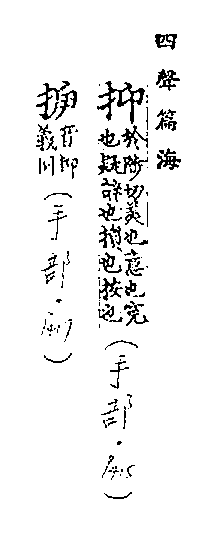 四聲篇海
抑於陟切美也意也冤
也疑辭也損也按也(手部.)
音抑
義同(手部.)